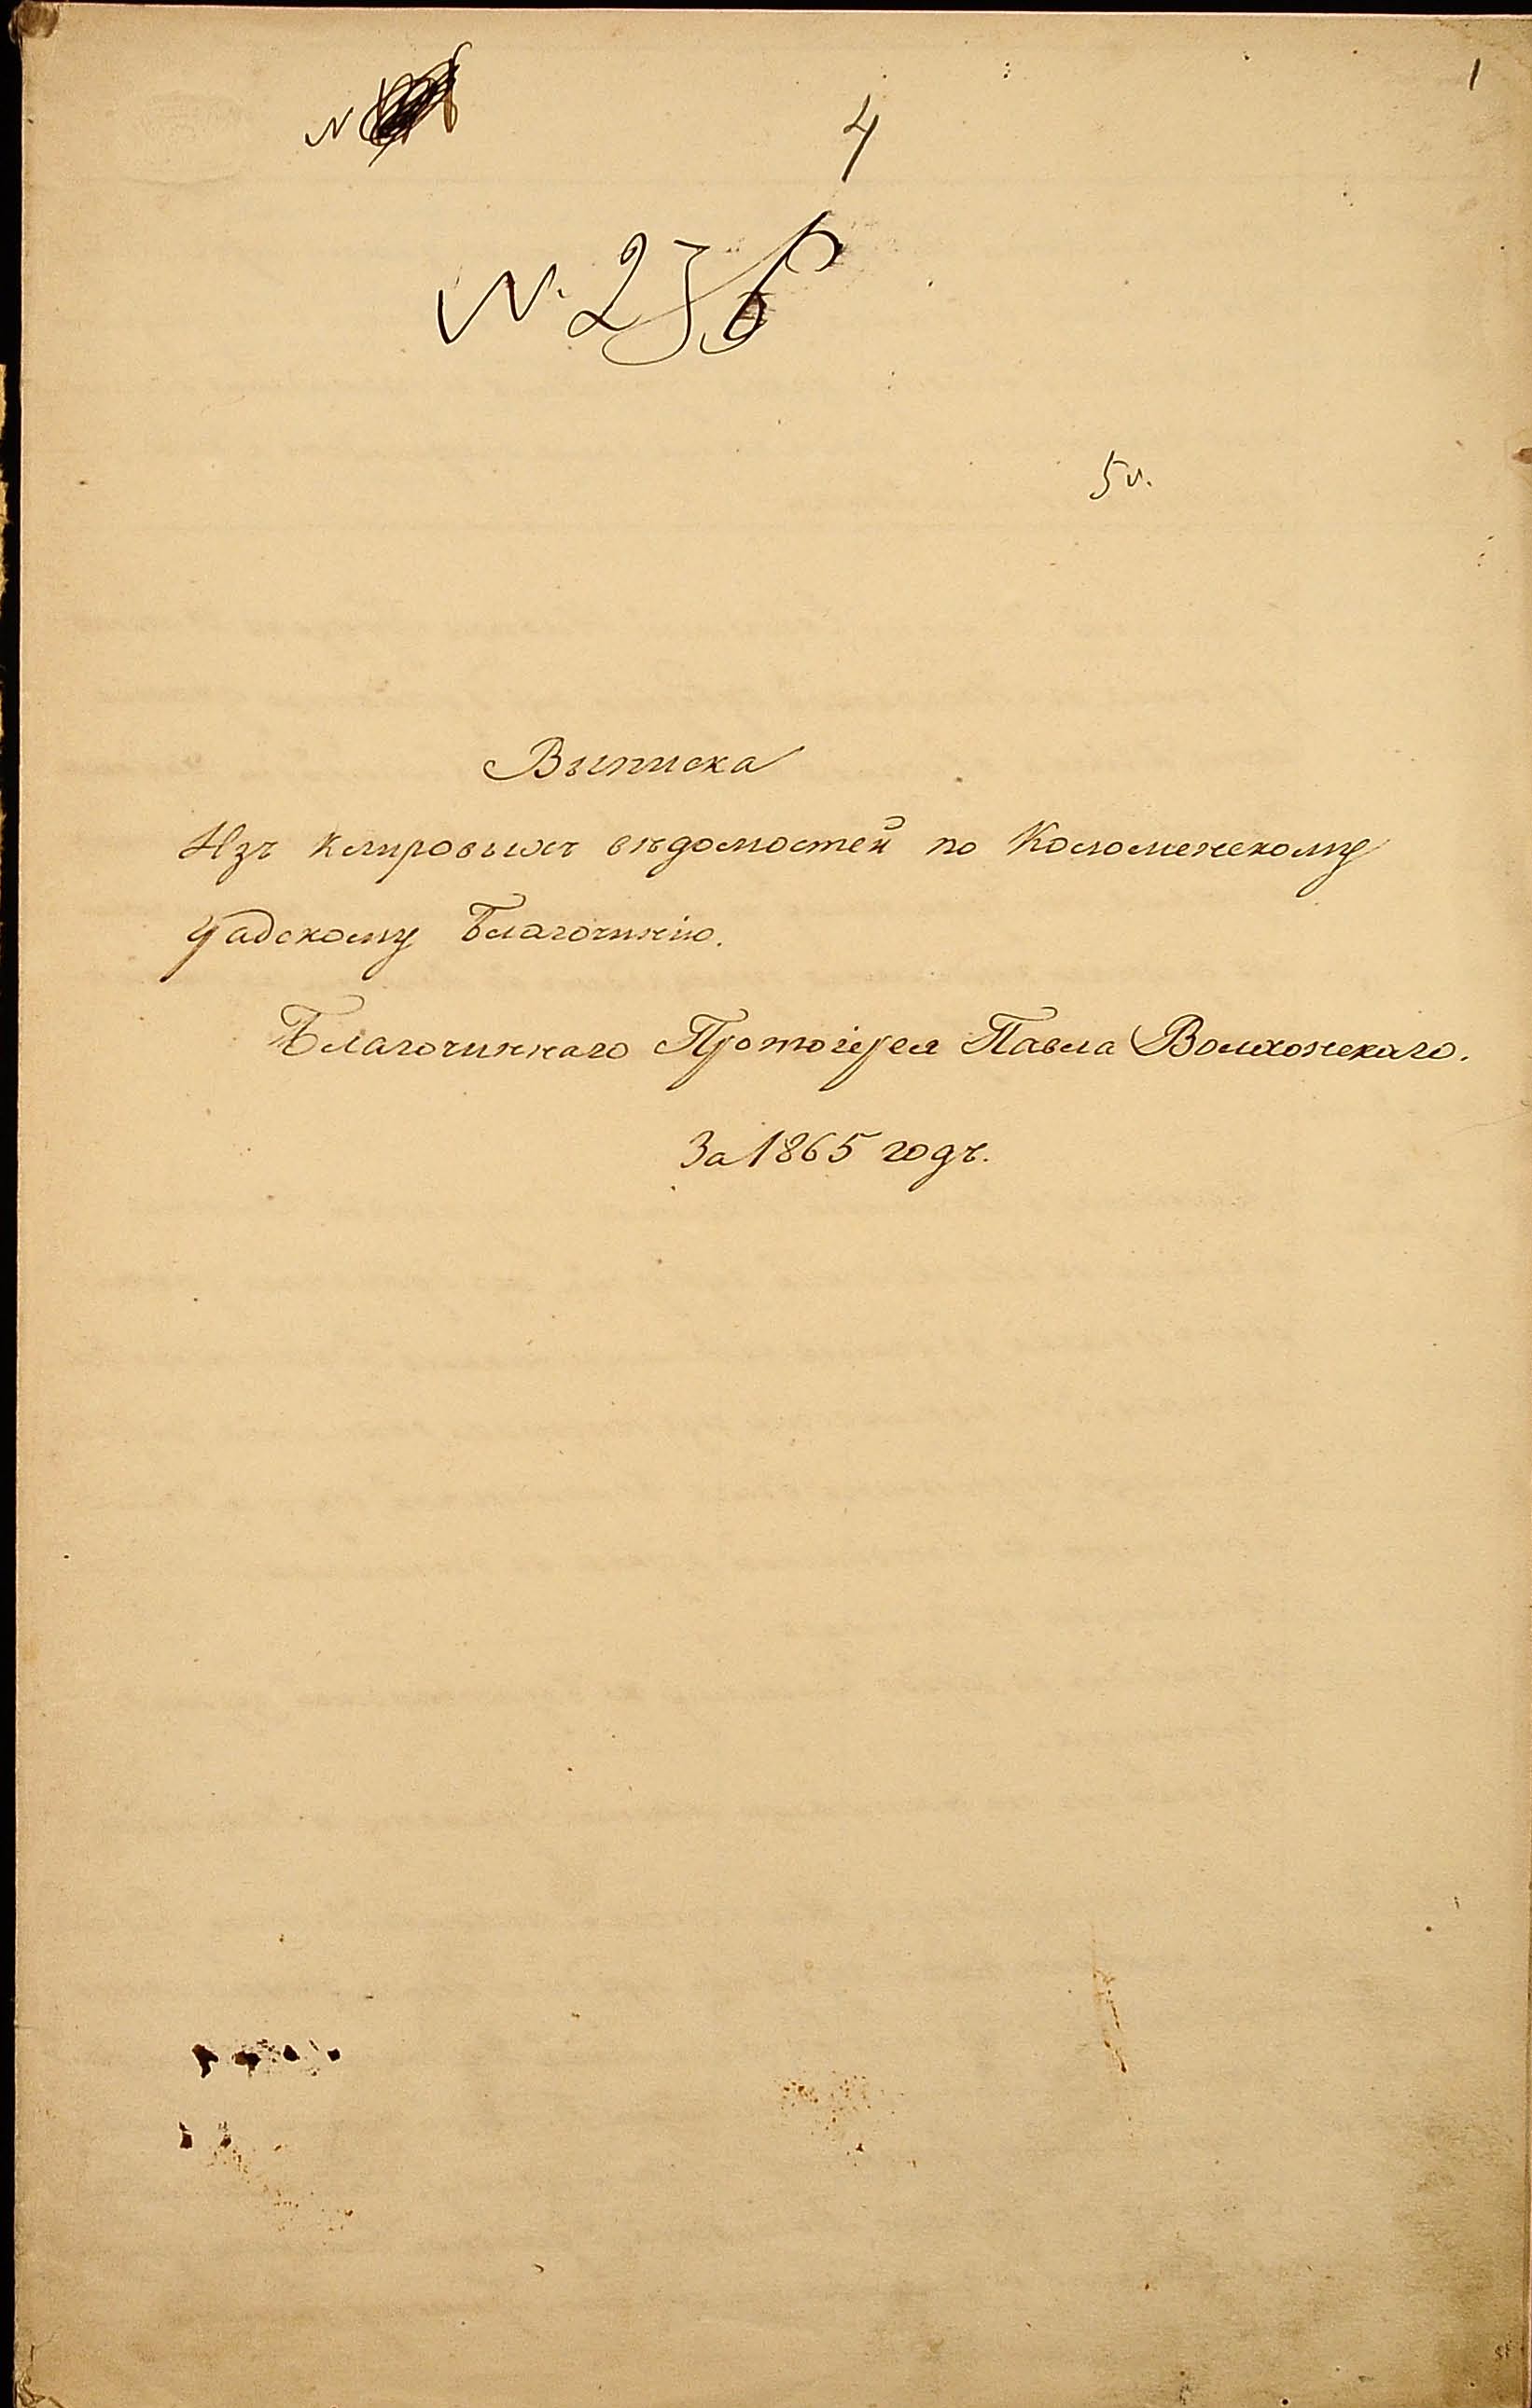 1
4
№ 236
5 л.
Выписка
Изъ клировыхъ вѣдомостей по Коломенскому
Градскому Благочинію.
Благочиннаго Протоіерея Павла Волхонскаго.
За 1865 годъ.